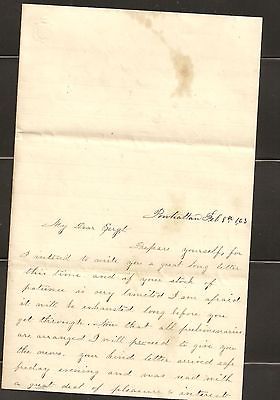 Powhattan Feb 8th 163
My Dear Girgt
Prepare yourselfs for
I intend to write you a great long letter
this time and if your stock of
patience is very limited I am afraid
it will be exhausted long before you
get through. Now that all preliminaries
are arranged I will proceed to give you
the news. your kind letter arived
evening and was read with
a great deal of pleasure & interest